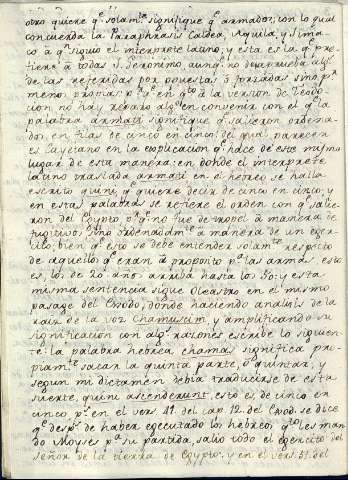 otro quiere q.e solam.te signifique q.e armados; con lo qual
concuerda la Paraphrasis Caldea, Aquila, y Sima-
co á q.n siguio el interprete latino; y esta es la q.e pre-
fiere á todas S. Jeronimo, aunq.e no desaprueba alg.a
de las referidas por opuestas ó forzadas sino p.r
menos propias: p.r q.e en q.to á la version de Teodo-
cion no hay reparo alg.o en convenir con el q.e la
palabra armati signifique q.e salieron ordena-
dos en filas de cinco en cinco: del qual parecer
es Cayetano en la explicacion q.e hace de este mismo
lugar de esta manera: en donde el interprete
latino traslada armati en el hebreo se halla
escrito quini, q.e quiere decir de cinco en cinco, y
en estas palabras se refiere el orden con q.e salie-
ron del Egypto p.r q.e no fue de tropel á manera de
fugitivos sino ordenadam.te á manera de un exer-
cito, bien q.e esto se debe entender solam.te respecto
de aquellos q.e eran á proposito p.a las armas esto
es los de 20. años arriba hasta los 50: y esta
misma sentencia sigue Oleastro en el mismo
pasage del Exodo, donde haciendo analisis de la
raiz de la voz Chamuscim y amplificando su
significacion con alg.s razones escribe lo siguien-
te: la palabra hebrea chamas significa pro-
piam.te sacar la quinta parte, ó quintar, y
segun mi dictamen debia traducirse de esta
suerte, quini ascenderunt, esto es de cinco en
cinco p.r q.e en el vers. 41. del cap. 12. del Exod. se dice
q.e desp.s de haber egecutado los hebreos q.to les man-
do Moyses p.a su partida, salio todo el egercito del
señor de la tierra de Egypto. y en el vers. 51. del